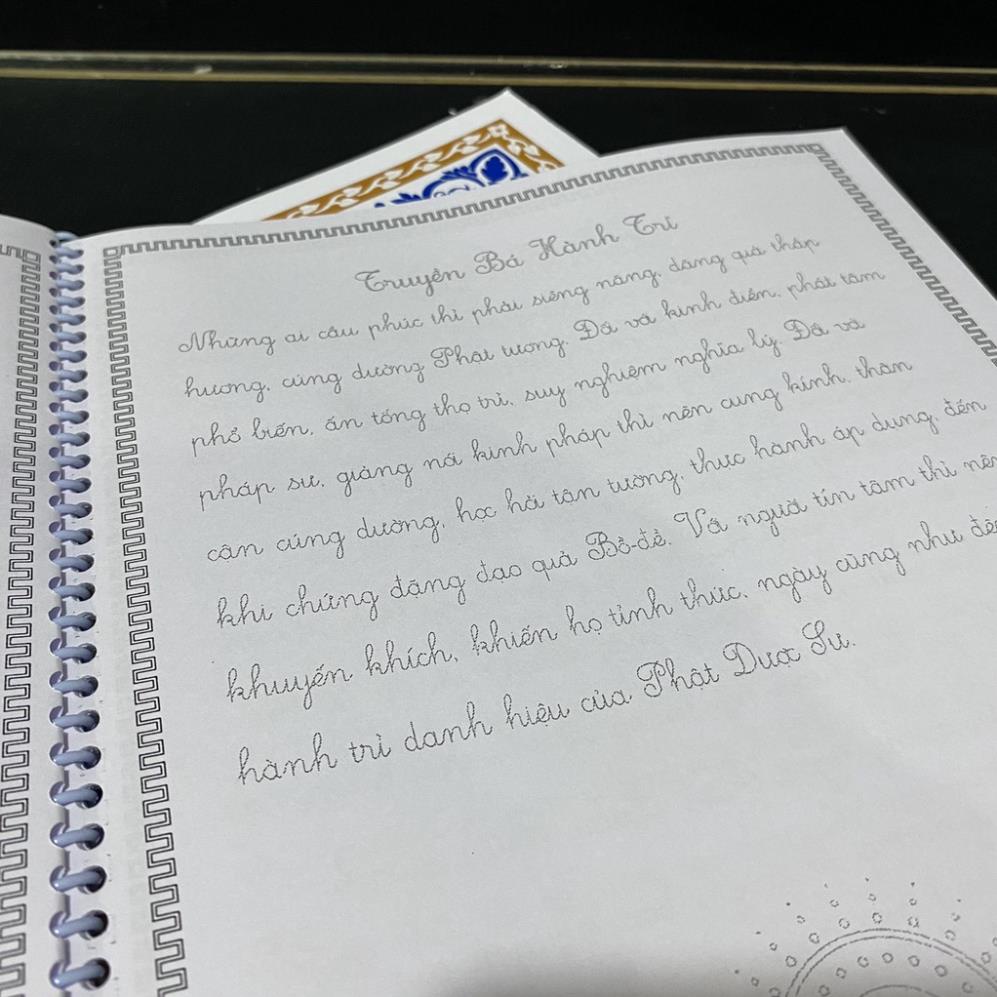 Truyền Bá Hành Trì
Những ai cầu phúc thì phải siêng năng, dâng quả thắp
hương, cúng dường Phật tượng. Đối với kinh điển, phát tâm
phổ biến, ấn tống thọ trì, suy nghiệm nghĩa lý. Đối với
pháp sư, giảng nói kinh pháp thì nên cung kính, thân
cận cúng dường, học hỏi tận tường, thực hành áp dụng, đến
khi chứng đặng đạo quả Bồ-đề. Với người tín tâm thì nên
khuyến khích, khiến họ tỉnh thức, ngày cũng như đêm
hành trì danh hiệu của Phật Dược Sư.